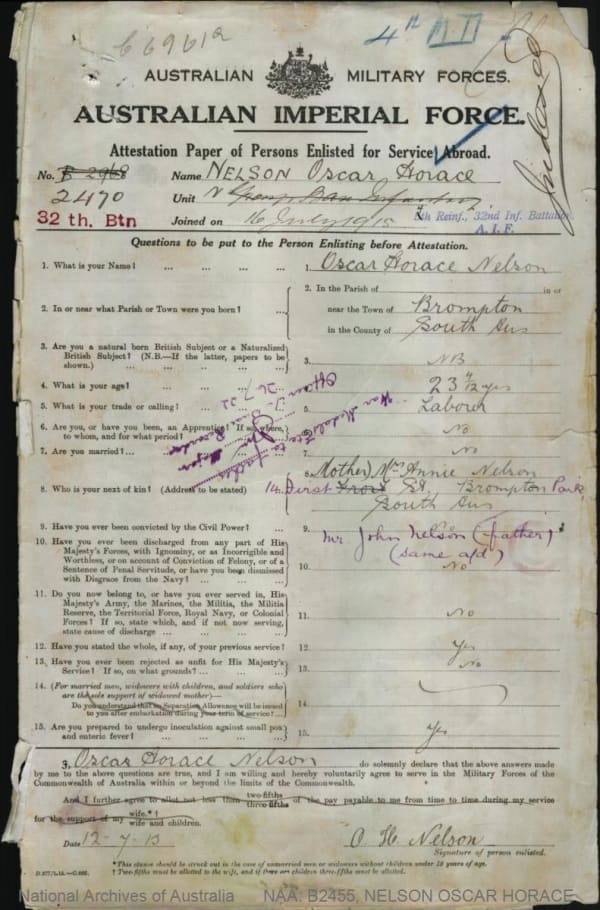 C6961a
4th M.D.
Indexed
AUSTRALIAN MILITARY FORCES.
AUSTRALIAN IMPERIAL FORCE.
Attestation Paper of Persons Enlisted for Service Abroad.
No. Name NELSON Oscar Horace
2470 Unit
32 th. Btn Joined on 16 July 1915 8th Reinf., 32nd Inf. Battalion
A. I. F.
Questions to be put to the Person Enlisting before Attestation.
1. What is your Name? ... ... ... 1. Oscar Horace Nelson
2. In or near what Parish or Town were you born? ... 2. In the Parish of in or
near the Town of Brompton
in the County of South Aus
3. Are you a natural born British Subject or a Naturalized
British Subject? (N.B.—If the latter, papers to be
shown.) ... ... ... 3. NB
4. What is your age? ... 23 4/12 yrs
5. What is your trade or calling? ... 5. Labour
6. Are you, or have you been, an Apprentice? If so, where,
to whom, and for what period? No
7. Are you married? ... No
8. Who is your next of kin? (Address to be stated) (Mother) Mrs Annie Nelson
14. First St. Brompton Park,
South Aus
9. Have you ever been convicted by the Civil Power? ... 9. No
Mr John Nelson (father)
(same ad)
10. Have you ever been discharged from any part of His
Majesty's Forces, with Ignominy, or as Incorrigible and
Worthless, or on account of Conviction of Felony, or of a
Sentence of Penal Servitude, or have you been dismissed
with Disgrace from the Navy? ... ... 10. No
11. Do you now belong to, or have you ever served in, His
Majesty's Army, the Marines, the Militia, the Militia
Reserve, the Territorial Force, Royal Navy, or Colonial
Forces? If so, state which, and if not now serving,
state cause of discharge ... ... ... 11. No
12. Have you stated the whole, if any, of your previous service? 12. Yes
13. Have you ever been rejected as unfit for His Majesty's
Service? If so, on what grounds? ... ... 13. No
14. (For married men, widowers with children, and soldiers who
are the sole support of widowed mother)—
Do you understand that no Separation Allowance will be issued
to you after embarkation during your term of service? ... 14.
15. Are you prepared to undergo inoculation against small pox
and enteric fever? ... ... ... 15. Yes
I, Oscar Horace Nelson do solemnly declare that the above answers made
by me to the above questions are true, and I am willing and hereby voluntarily agree to serve in the Military Forces of the
Commonwealth of Australia within or beyond the limits of the Commonwealth.
And I further agree to allot not less than two-fifths three-fifths of the pay payable to me from time to time during my service
for the support of my wife.*†
wife and children.
Date 12-7-15 O. H. Nelson
Signature of person enlisted.
*This clause should be struck out in the case of unmarried men or widowers without children under 18 years of age.
† Two-fifths must be allotted to the wife, and if there are children three-fifths must be allotted.
National Archives of Australia NAA: B2455, NELSON OSCAR HORACE